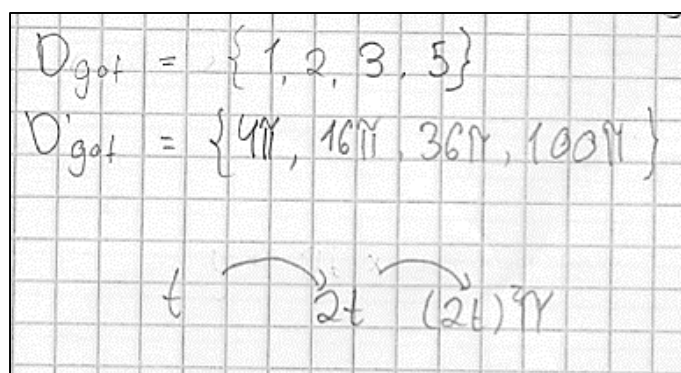 D_got = {1, 2, 3, 5}
D'_got = {4π, 16π, 36π, 100π}
t 2t (2t)²π